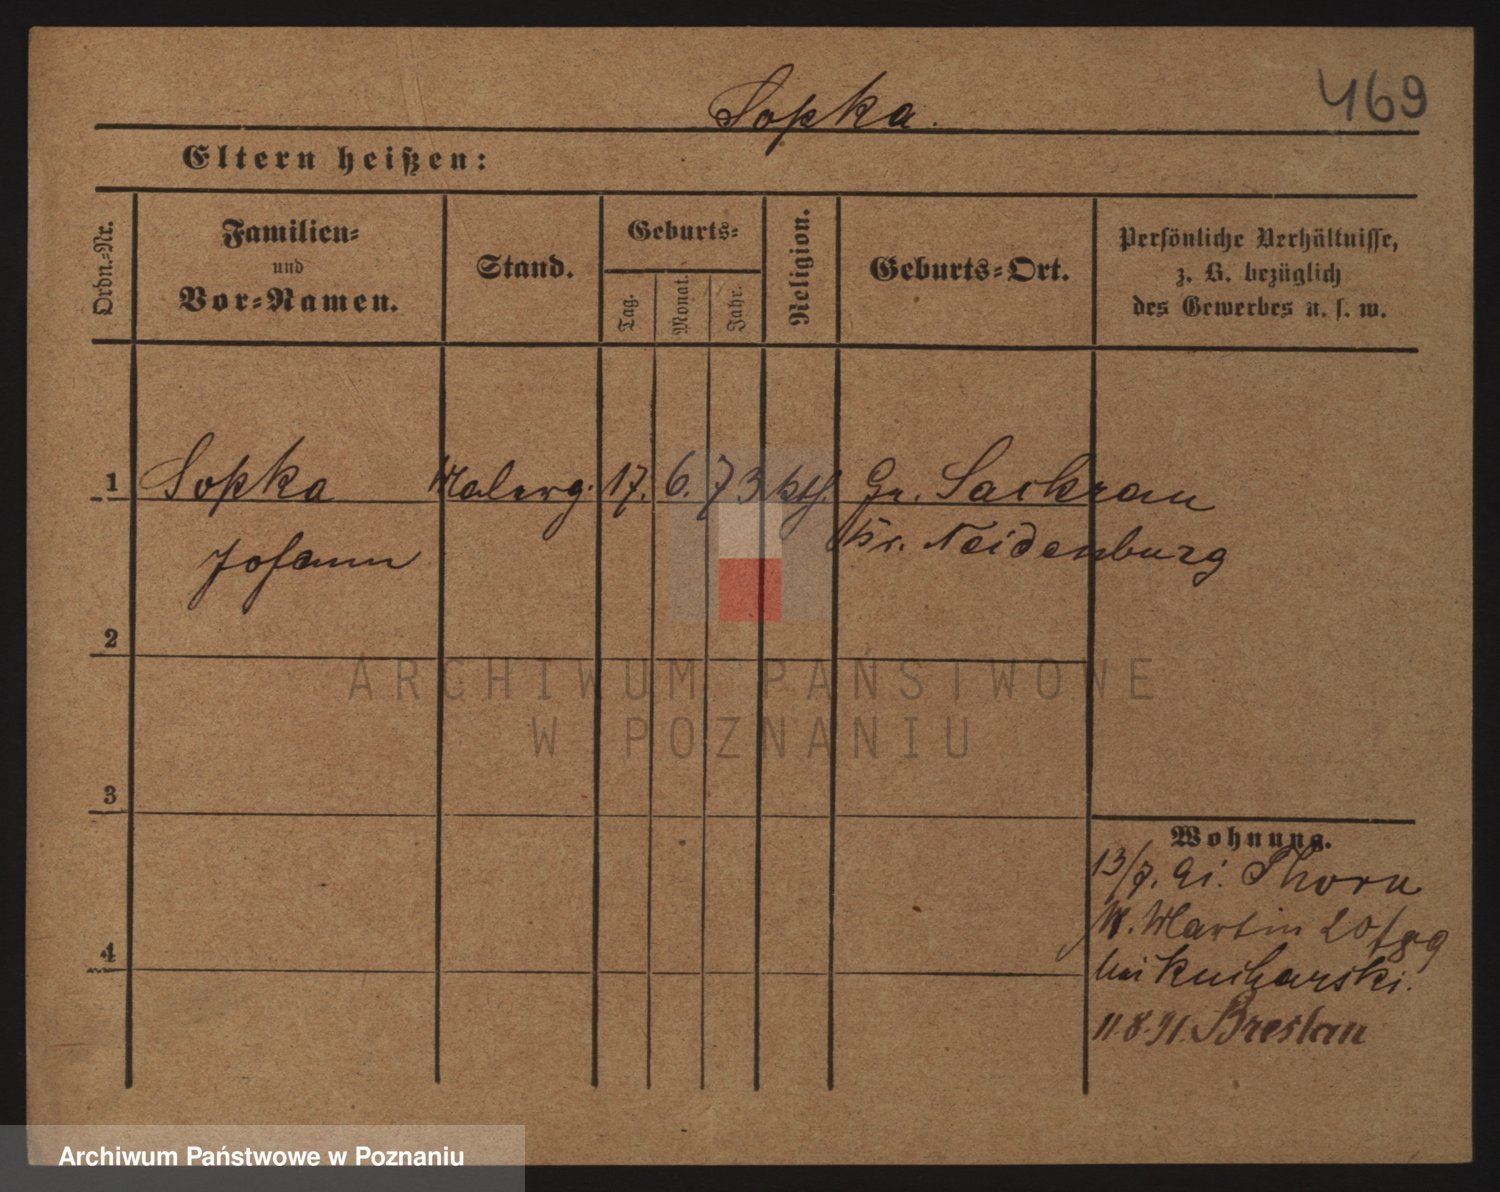 Sopka. 469
Eltern heißen:
Ordn.-Nr.
Familien-
und
Vor-Namen.
Stand.
Geburts-
Tag.
Monat.
Jahr.
Religion.
Geburts-Ort.
Persönliche Verhältnisse,
z. B. bezüglich
des Gewerbes u. s. w.
1 Sopka Malerg. 17. 6. 73 kth. Gr. Sackrau
Johann Kr. Neidenburg
2
3
4
Wohnung.
13/7. 91. Thorn
St. Martin 20/
bei Kucharski.
11.8.91. Breslau
ARCHIWUM PAŃSTWOWE
W POZNANIU
Archiwum Państwowe w Poznaniu